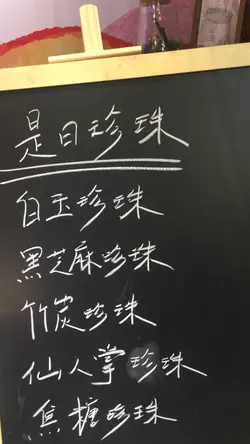 是日珍珠
白玉珍珠
黑芝麻珍珠
竹炭珍珠
仙人掌珍珠
焦糖珍珠